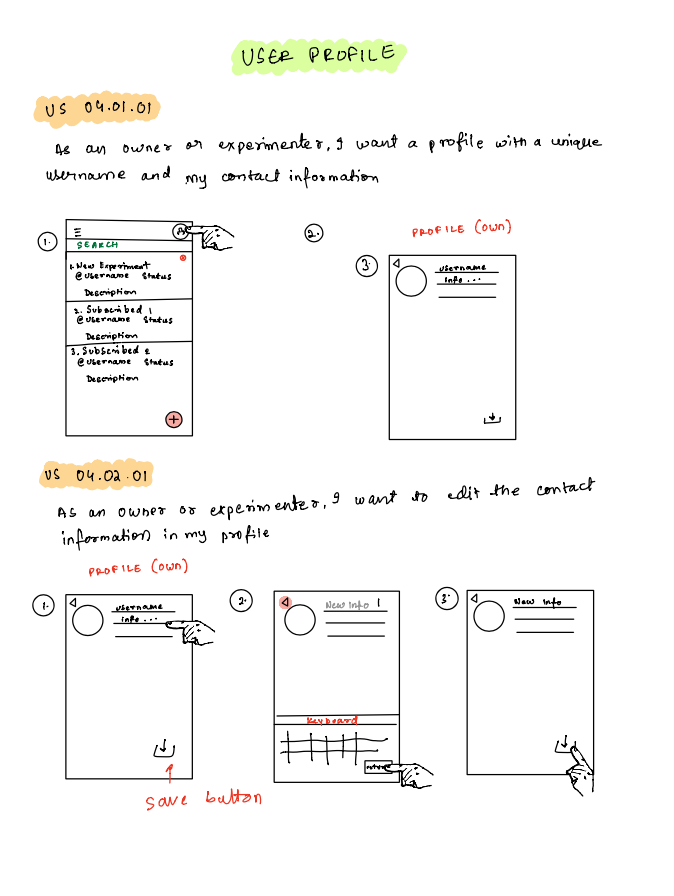 USER PROFILE
US 04.01.01
As an owner or experimenter, I want a profile with a unique
username and my contact information
1.
SEARCH
1. New Experiment
@Username Status
Description
2. Subscribed 1
@Username Status
Description
3. Subscribed 2
@Username Status
Description
+
2.
PROFILE (OWN)
3.
Username
info ...
US 04.02.01
As an owner or experimenter, I want to edit the contact
information in my profile
PROFILE (OWN)
1.
Username
info ...
save button
2.
New Info |
Keyboard
return
3.
New Info